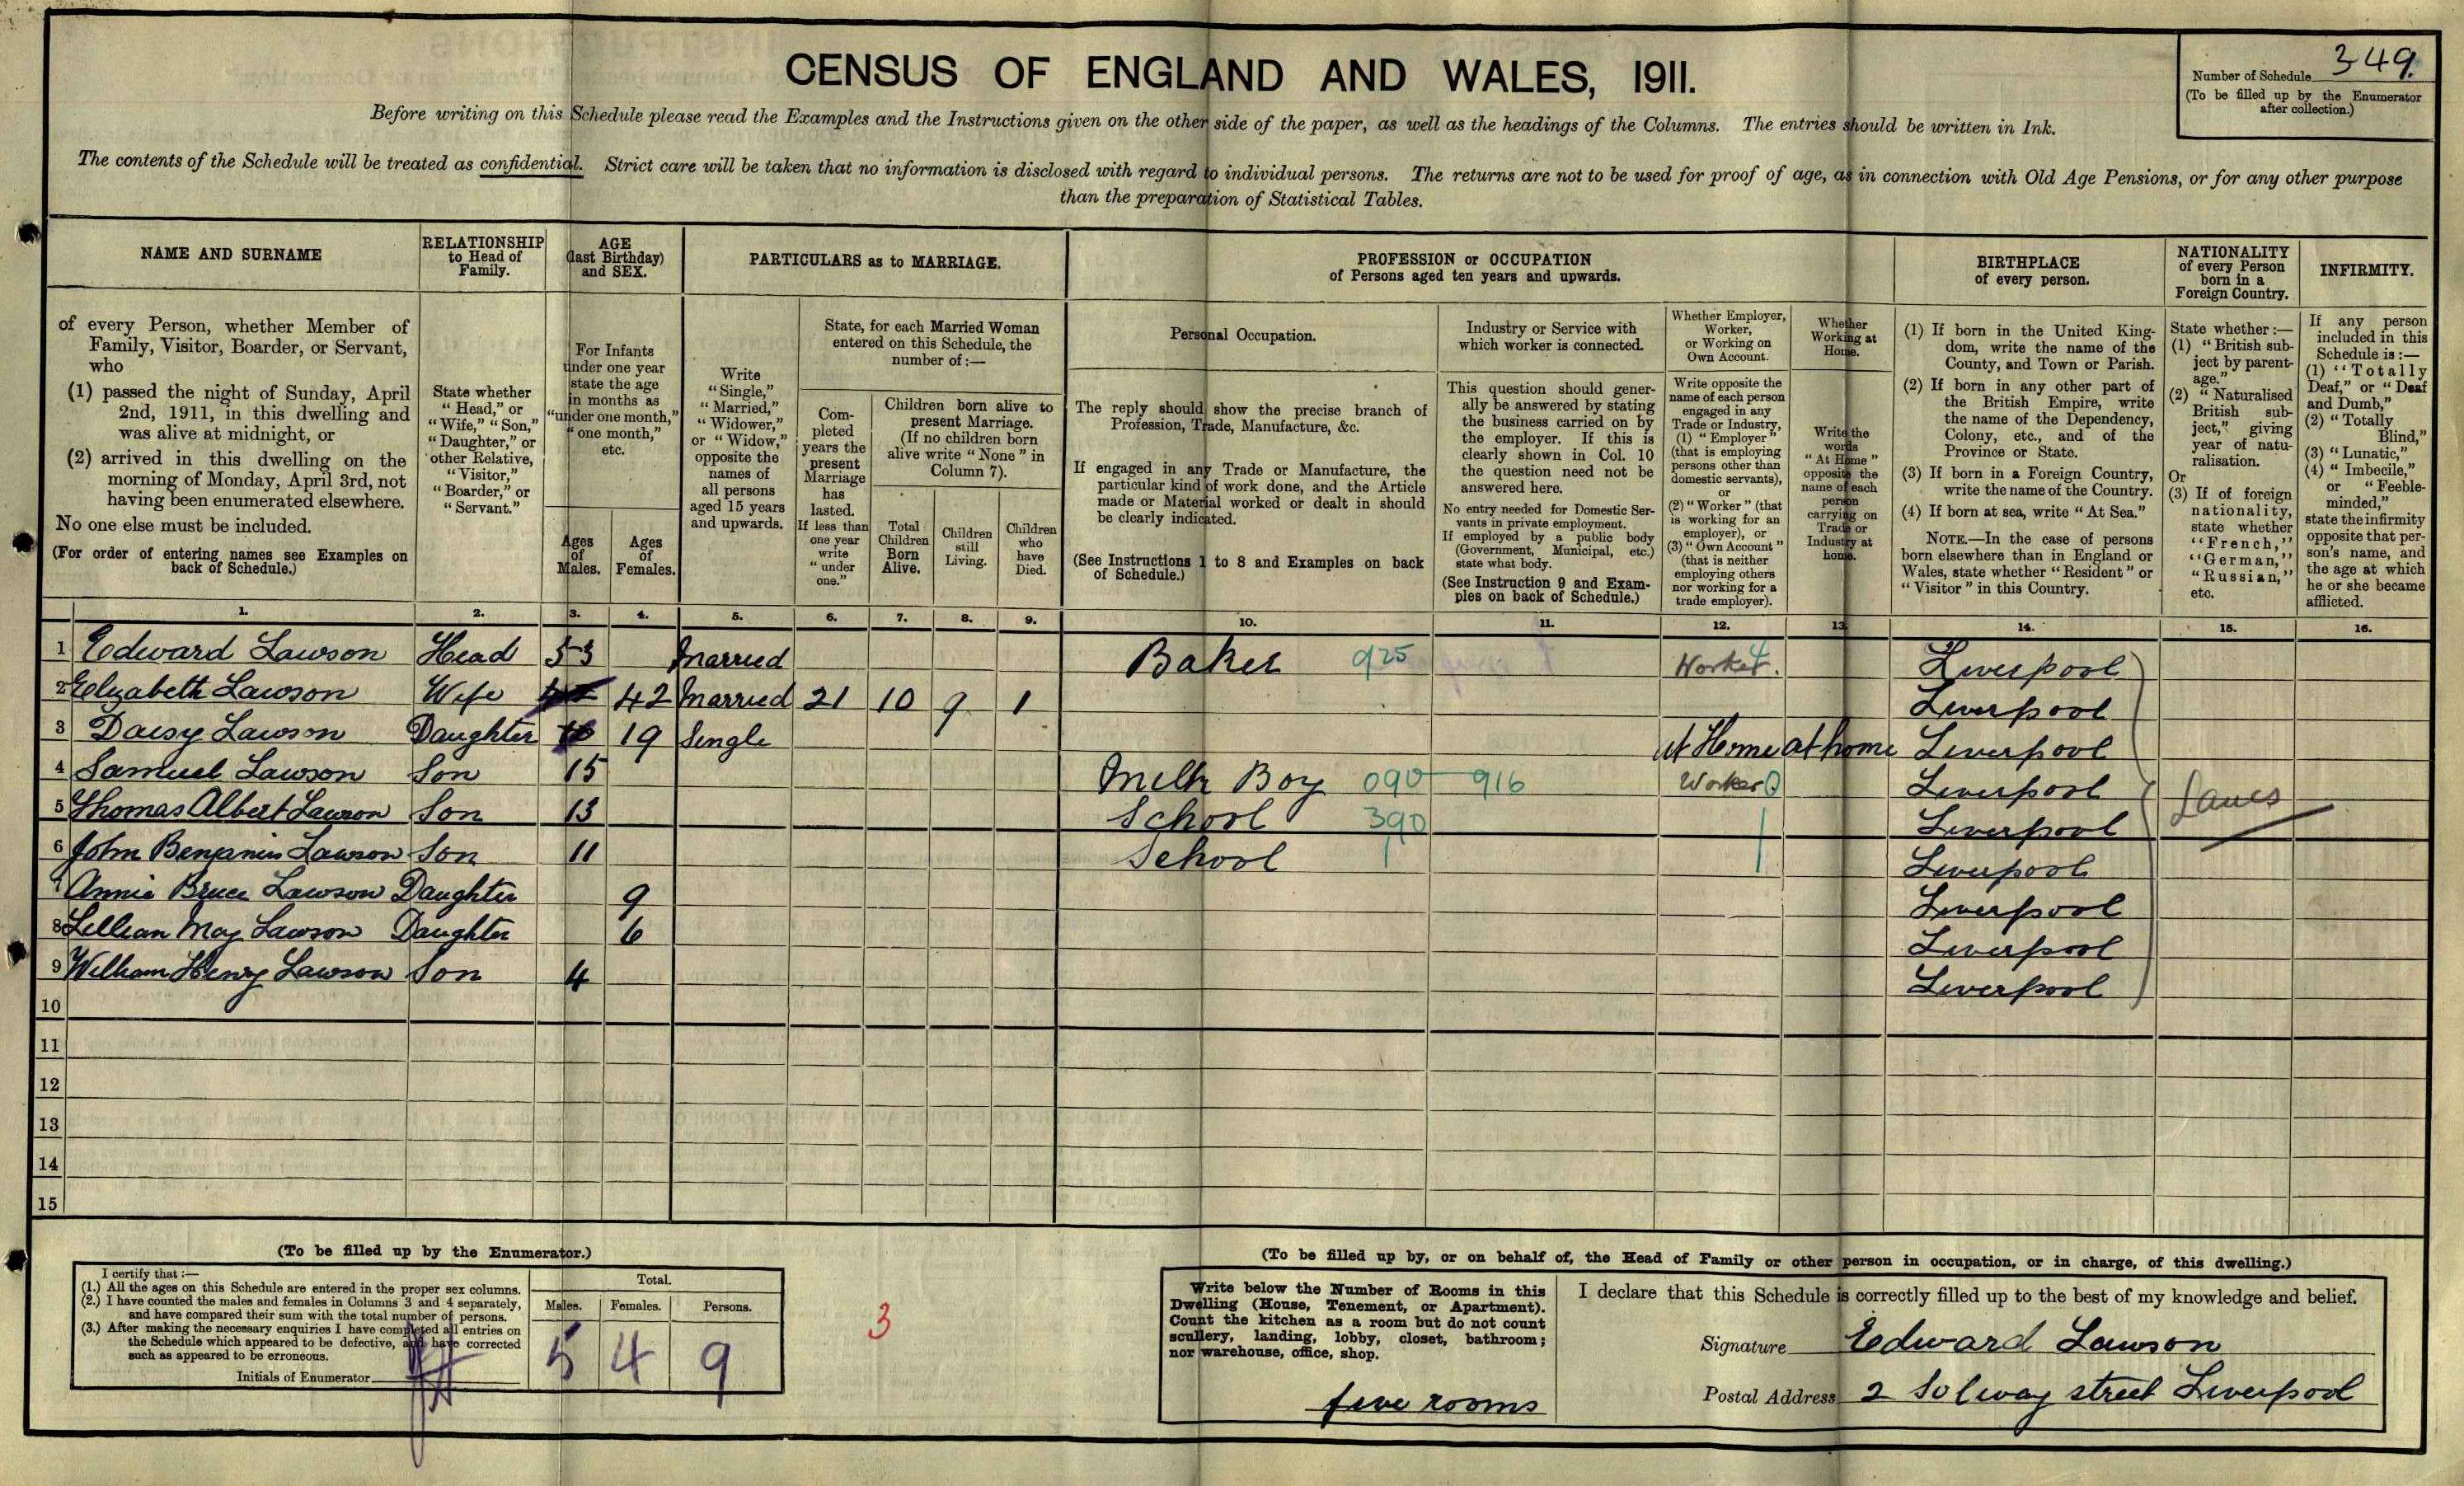 CENSUS OF ENGLAND AND WALES, 1911.
Number of Schedule 349.
(To be filled up by the Enumerator
after collection.)
Before writing on this Schedule please read the Examples and the Instructions given on the other side of the paper, as well as the headings of the Columns. The entries should be written in Ink.
The contents of the Schedule will be treated as confidential. Strict care will be taken that no information is disclosed with regard to individual persons. The returns are not to be used for proof of age, as in connection with Old Age Pensions, or for any other purpose
than the preparation of Statistical Tables.
NAME AND SURNAME
of every Person, whether Member of
Family, Visitor, Boarder, or Servant,
who
(1) passed the night of Sunday, April
2nd, 1911, in this dwelling and
was alive at midnight, or
(2) arrived in this dwelling on the
morning of Monday, April 3rd, not
having been enumerated elsewhere.
No one else must be included.
(For order of entering names see Examples on
back of Schedule.)
RELATIONSHIP
to Head of
Family.
State whether
"Head," or
"Wife," "Son,"
"Daughter," or
other Relative,
"Visitor,"
"Boarder," or
"Servant."
AGE
(last Birthday)
and SEX.
For Infants
under one year
state the age
in months as
"under one month,"
"one month,"
etc.
Ages
of
Males.
Ages
of
Females.
PARTICULARS as to MARRIAGE.
Write
"Single,"
"Married,"
"Widower,"
or "Widow,"
opposite the
names of
all persons
aged 15 years
and upwards.
State, for each Married Woman
entered on this Schedule, the
number of:—
Com-
pleted
years the
present
Marriage
has
lasted.
If less than
one year
write
"under
one."
Children born alive to
present Marriage.
(If no children born
alive write "None" in
Column 7).
Total
Children
Born
Alive.
Children
still
Living.
Children
who
have
Died.
PROFESSION or OCCUPATION
of Persons aged ten years and upwards.
Personal Occupation.
The reply should show the precise branch of
Profession, Trade, Manufacture, &c.
If engaged in any Trade or Manufacture, the
particular kind of work done, and the Article
made or Material worked or dealt in should
be clearly indicated.
(See Instructions 1 to 8 and Examples on back
of Schedule.)
Industry or Service with
which worker is connected.
This question should gener-
ally be answered by stating
the business carried on by
the employer. If this is
clearly shown in Col. 10
the question need not be
answered here.
No entry needed for Domestic Ser-
vants in private employment.
If employed by a public body
(Government, Municipal, etc.)
state what body.
(See Instruction 9 and Exam-
ples on back of Schedule.)
Whether Employer,
Worker,
or Working on
Own Account.
Write opposite the
name of each person
engaged in any
Trade or Industry,
(1) "Employer"
(that is employing
persons other than
domestic servants),
or
(2) "Worker" (that
is working for an
employer), or
(3) "Own Account"
(that is neither
employing others
nor working for a
trade employer).
Whether
Working at
Home.
Write the
words
"At Home"
opposite the
name of each
person
carrying on
Trade or
Industry at
home.
BIRTHPLACE
of every person.
(1) If born in the United King-
dom, write the name of the
County, and Town or Parish.
(2) If born in any other part of
the British Empire, write
the name of the Dependency,
Colony, etc., and of the
Province or State.
(3) If born in a Foreign Country,
write the name of the Country.
(4) If born at sea, write "At Sea."
NOTE.—In the case of persons
born elsewhere than in England or
Wales, state whether "Resident" or
"Visitor" in this Country.
NATIONALITY
of every Person
born in a
Foreign Country.
State whether:—
(1) "British sub-
ject by parent-
age."
(2) "Naturalised
British sub-
ject," giving
year of natu-
ralisation.
Or
(3) If of foreign
nationality,
state whether
"French,"
"German,"
"Russian,"
etc.
INFIRMITY.
If any person
included in this
Schedule is:—
(1) "Totally
Deaf," or "Deaf
and Dumb,"
(2) "Totally
Blind,"
(3) "Lunatic,"
(4) "Imbecile,"
or "Feeble-
minded,"
state the infirmity
opposite that per-
son's name, and
the age at which
he or she became
afflicted.
1. 2. 3. 4. 5. 6. 7. 8. 9. 10. 11. 12. 13. 14. 15. 16.
1 Edward Lawson Head 53 Married Baker 925 Worker. 4 Liverpool
2 Elizabeth Lawson Wife 42 Married 21 10 9 1 Liverpool
3 Daisy Lawson Daughter 19 Single At Home at home Liverpool
4 Samuel Lawson Son 15 Milk Boy 090 916 Worker Liverpool
Lancs
5 Thomas Albert Lawson Son 13 School 390 Liverpool
6 John Benjamin Lawson Son 11 School Liverpool
7 Annie Bruce Lawson Daughter 9 Liverpool
8 Lillian May Lawson Daughter 6 Liverpool
9 William Henry Lawson Son 4 Liverpool
10
11
12
13
14
15
(To be filled up by the Enumerator.)
I certify that:—
(1.) All the ages on this Schedule are entered in the proper sex columns.
(2.) I have counted the males and females in Columns 3 and 4 separately,
and have compared their sum with the total number of persons.
(3.) After making the necessary enquiries I have completed all entries on
the Schedule which appeared to be defective, and have corrected
such as appeared to be erroneous.
Initials of Enumerator
Total.
Males. Females. Persons.
5 4 9
3
(To be filled up by, or on behalf of, the Head of Family or other person in occupation, or in charge, of this dwelling.)
Write below the Number of Rooms in this
Dwelling (House, Tenement, or Apartment).
Count the kitchen as a room but do not count
scullery, landing, lobby, closet, bathroom;
nor warehouse, office, shop.
five rooms
I declare that this Schedule is correctly filled up to the best of my knowledge and belief.
Signature Edward Lawson
Postal Address 2 Solway street Liverpool